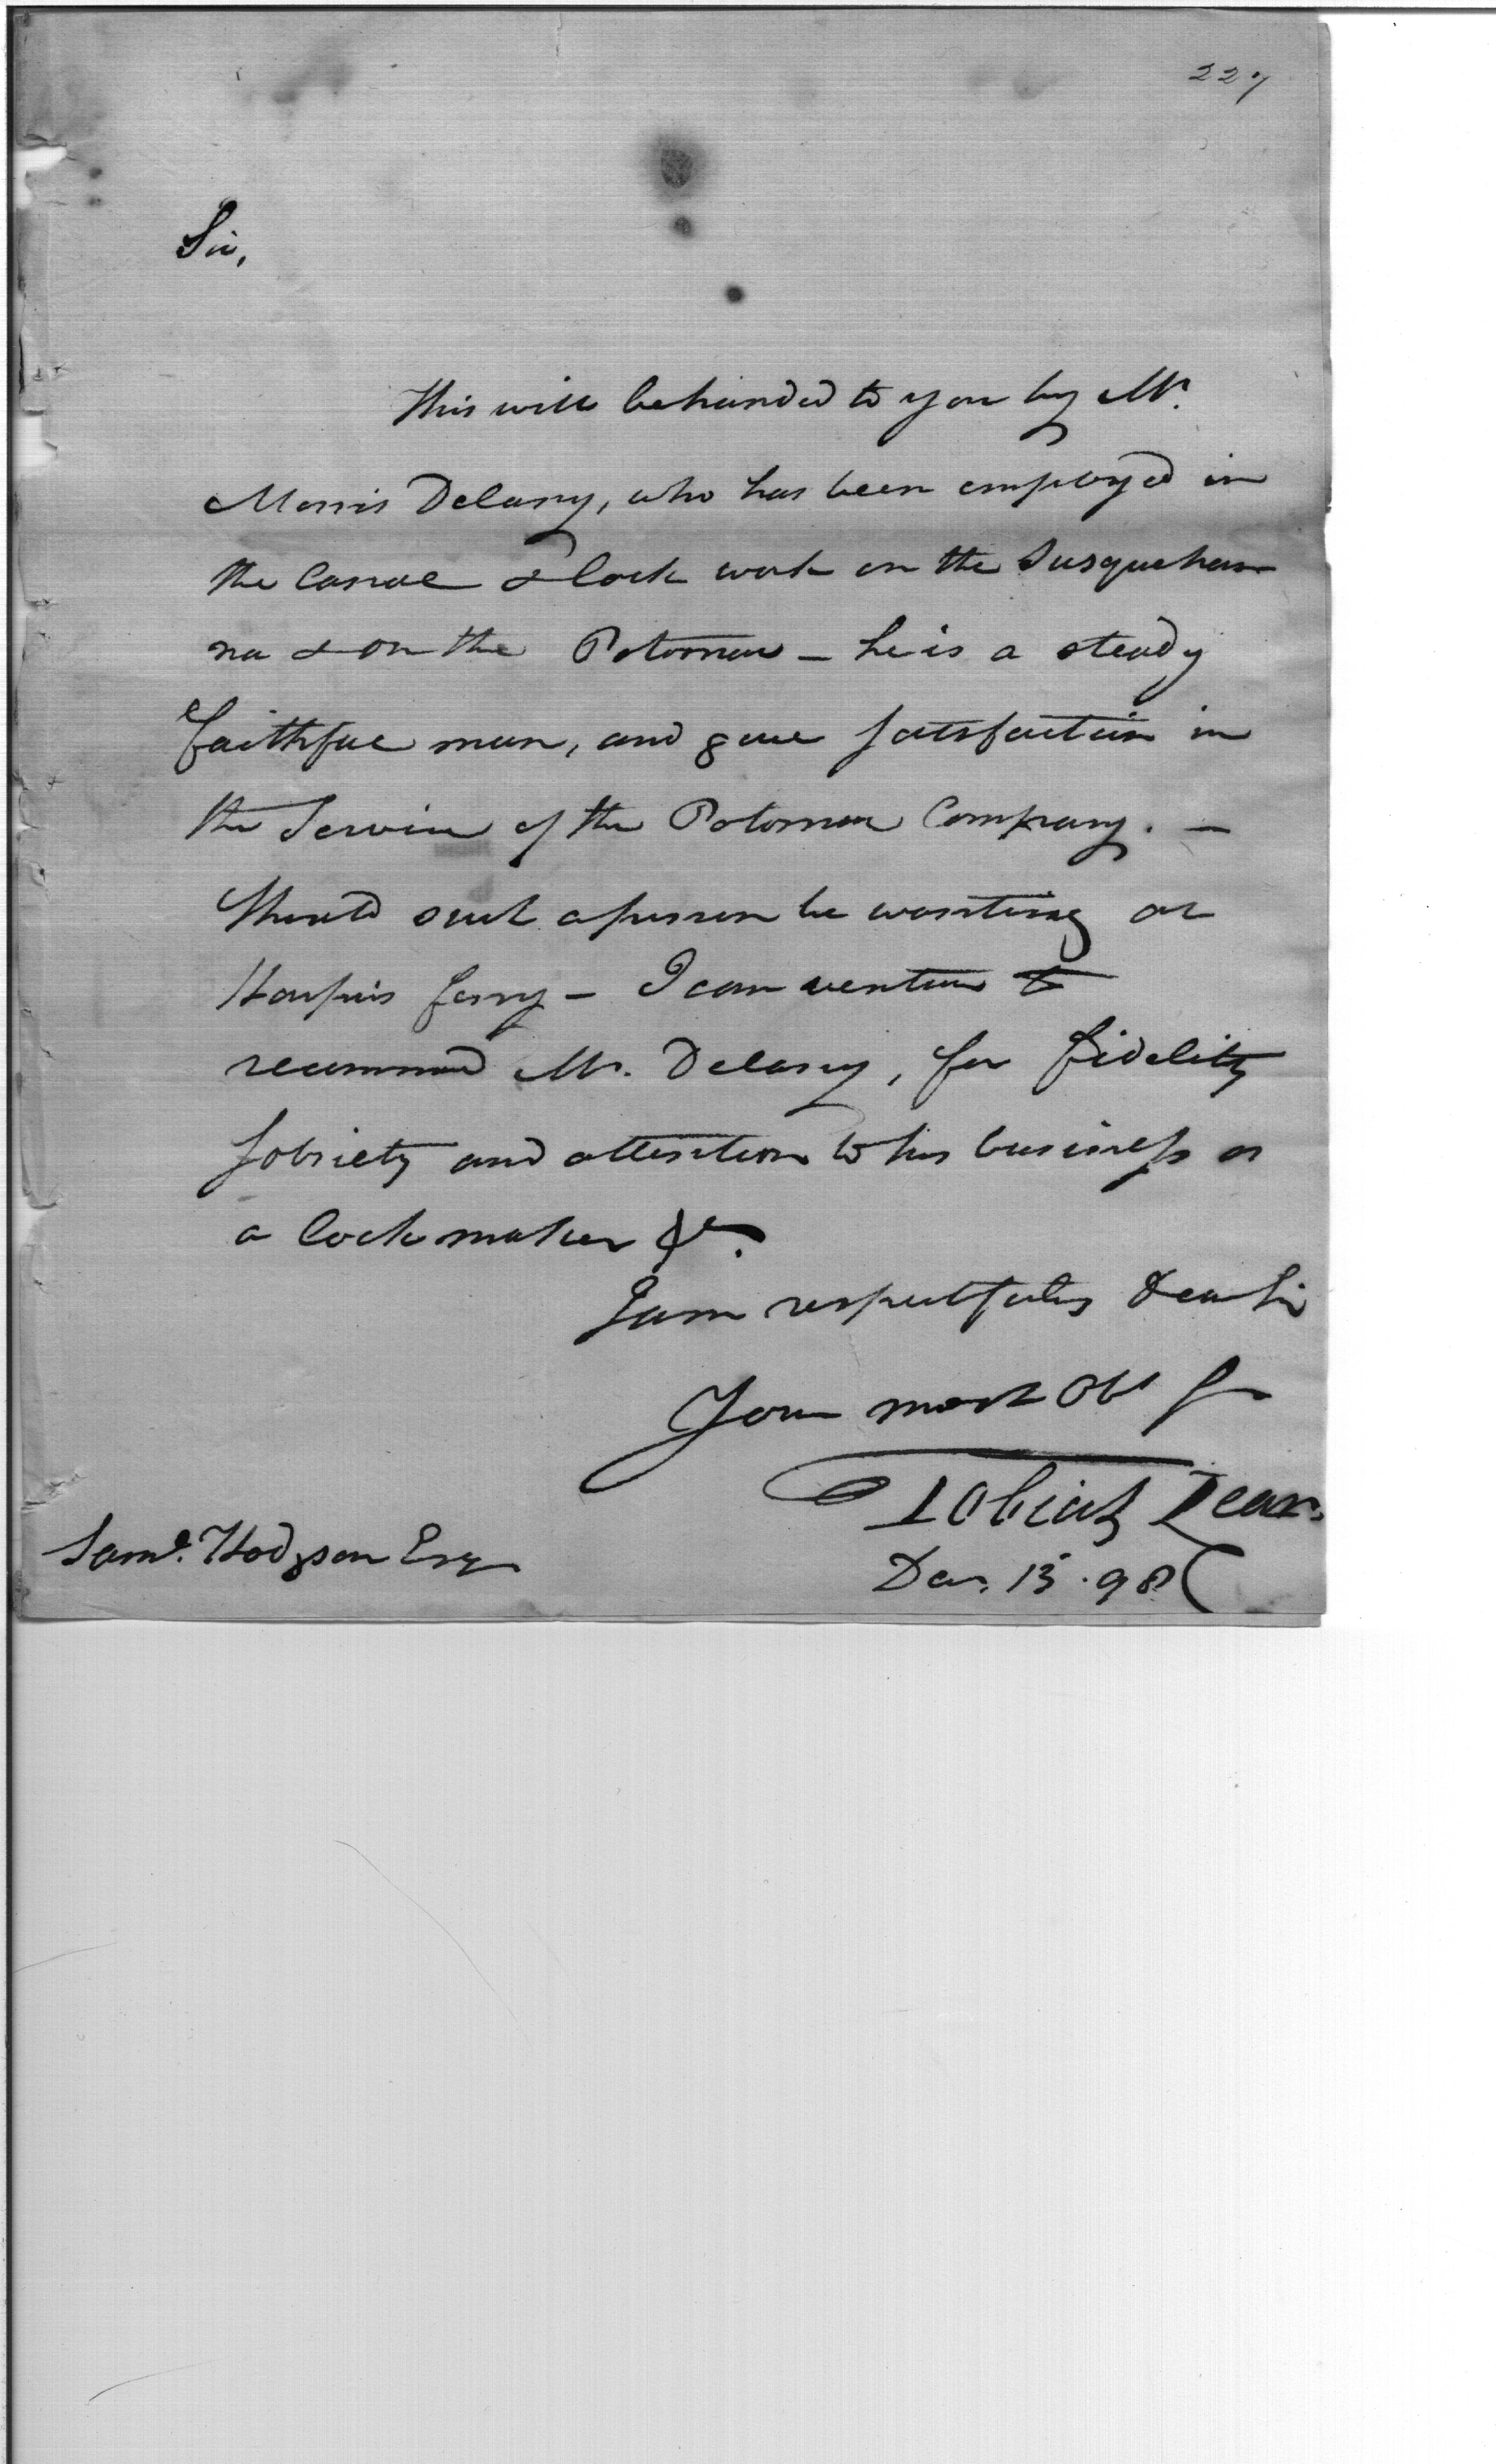 227
Sir,
This will be handed to you by Mr.
Morris Delany, who has been employed in
the Canal & lock work on the Susquehan
na & on the Potomac – he is a steady
faithful man, and gave satisfaction in
the Service of the Potomac Company. –
Should such a person be wanting at
Harpers ferry – I can venture to
recommend Mr. Delany, for fidelity
sobriety and attention to his business as
a lock maker &c.
I am respectfully Dear Sir
Your most Obt Sr
Tobias Lear.
Saml. Hodgson Esqr
Dec. 15. 98